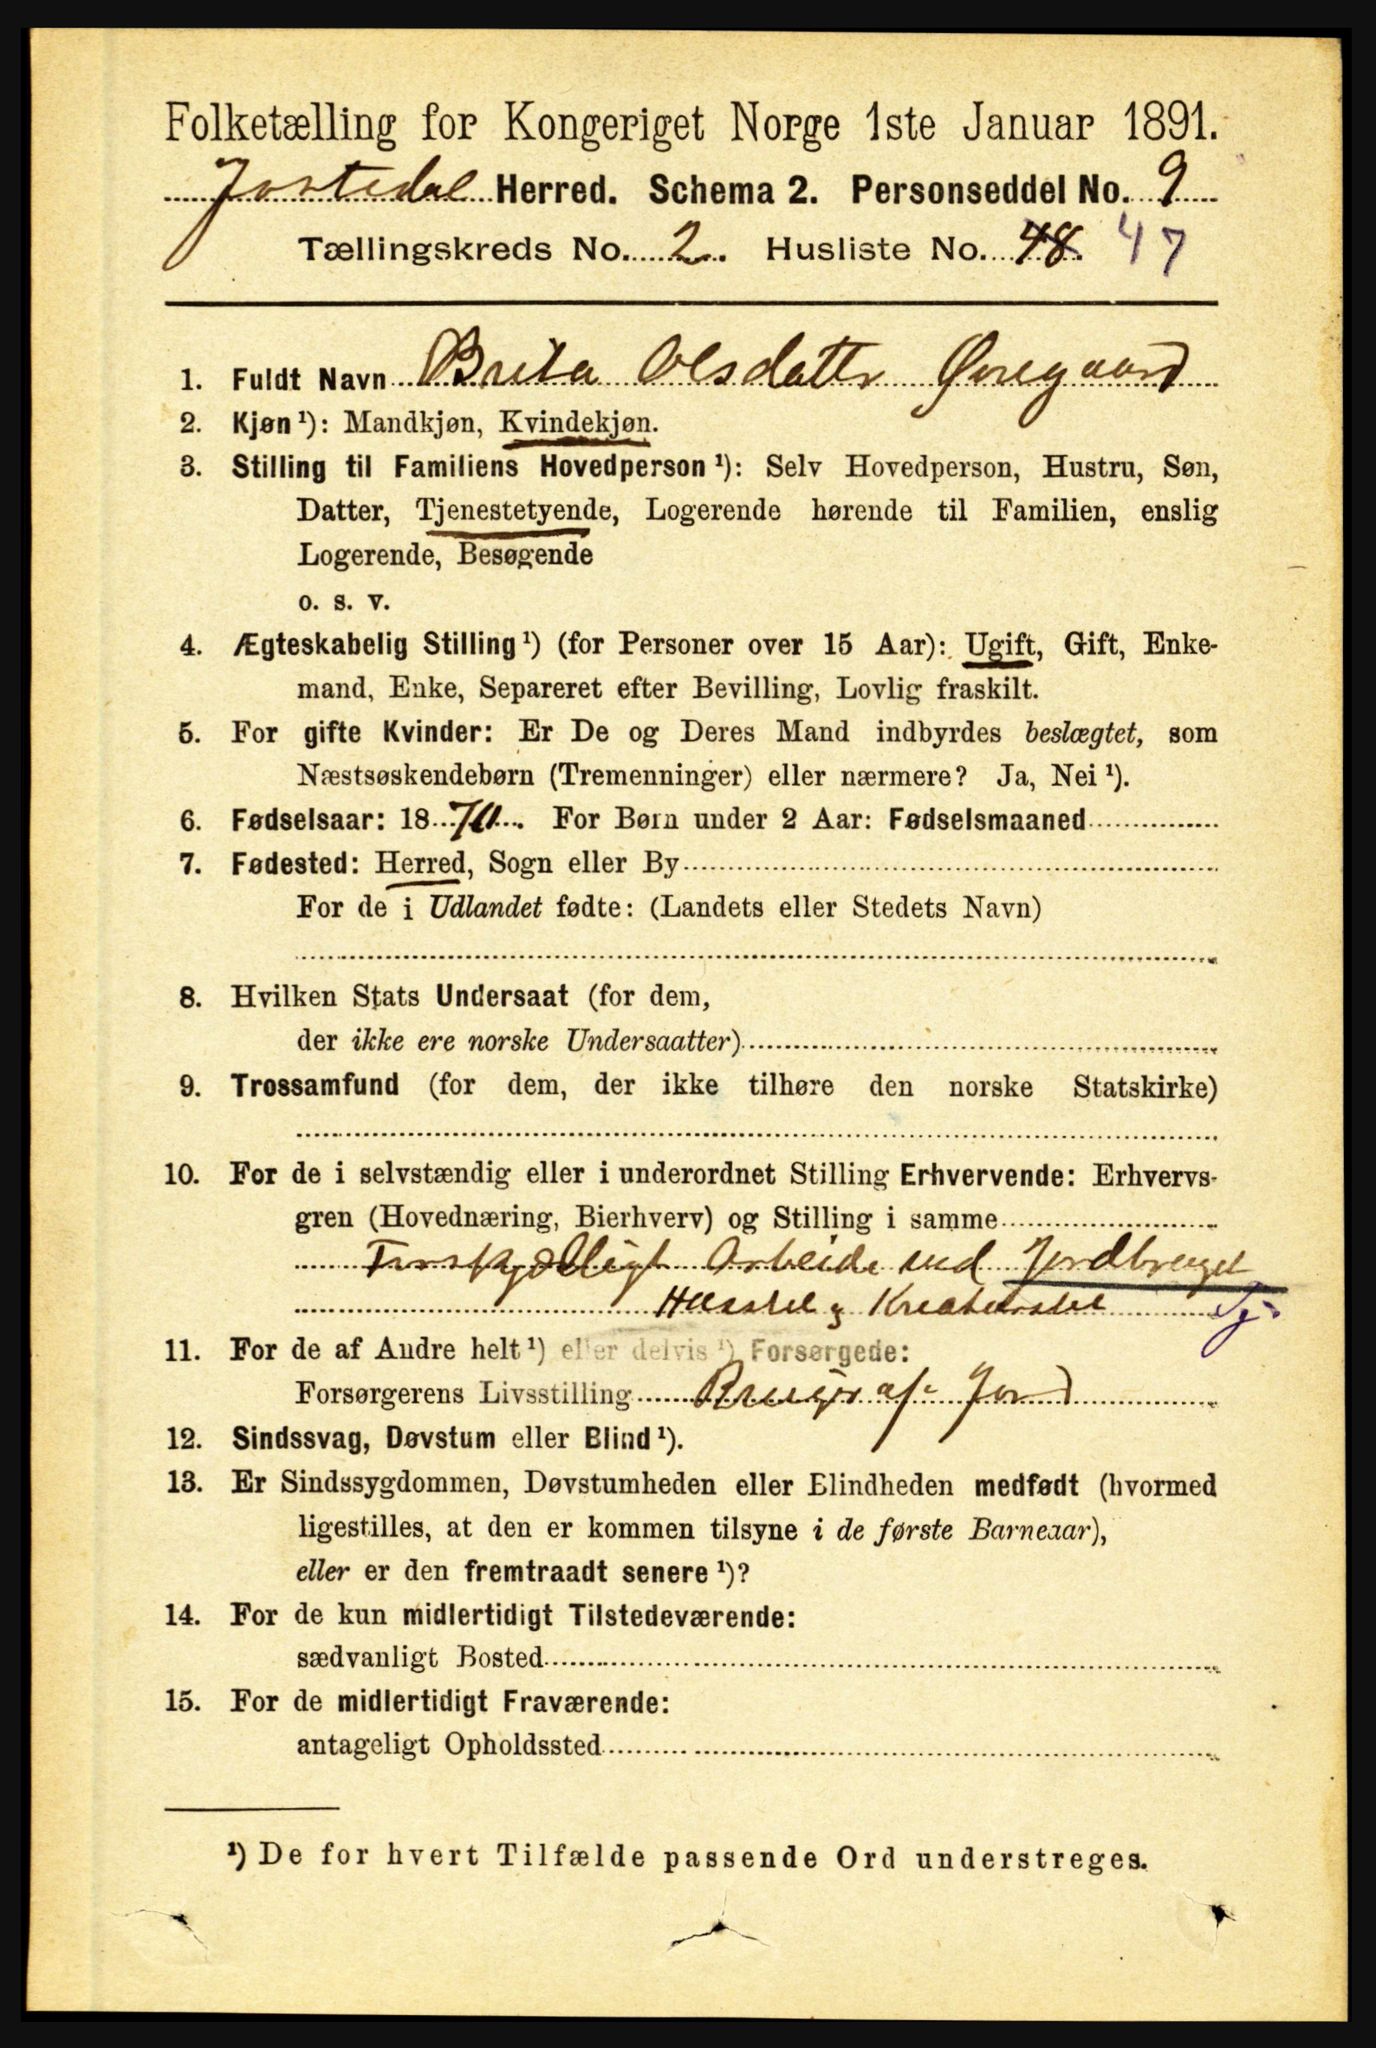 Folketælling for Kongeriget Norge 1ste Januar 1891.
Jostedal Herred. Schema 2. Personseddel No. 9
Tællingskreds No. 2. Husliste No. 48. 47
1. Fuldt Navn Brita Olsdatter Øvregaard
2. Kjøn ¹): Mandkjøn, Kvindekjøn.
3. Stilling til Familiens Hovedperson ¹): Selv Hovedperson, Hustru, Søn,
Datter, Tjenestetyende, Logerende hørende til Familien, enslig
Logerende, Besøgende
o. s. v.
4. Ægteskabelig Stilling ¹) (for Personer over 15 Aar): Ugift, Gift, Enke-
mand, Enke, Separeret efter Bevilling, Lovlig fraskilt.
5. For gifte Kvinder: Er De og Deres Mand indbyrdes beslægtet, som
Næstsøskendebørn (Tremenninger) eller nærmere? Ja, Nei ¹).
6. Fødselsaar: 18 . For Børn under 2 Aar: Fødselsmaaned
7. Fødested: Herred, Sogn eller By
For de i Udlandet fødte: (Landets eller Stedets Navn)
8. Hvilken Stats Undersaat (for dem,
der ikke ere norske Undersaatter)
9. Trossamfund (for dem, der ikke tilhøre den norske Statskirke)
10. For de i selvstændig eller i underordnet Stilling Erhvervende: Erhvervs-
gren (Hovednæring, Bierhverv) og Stilling i samme
Forskjelligt Arbeide ved Jordbruget
Husstel og Kreaturstel Tj.
11. For de af Andre helt ¹) eller delvis ¹) Forsørgede:
Forsørgerens Livsstilling Bruger af Jord
12. Sindssvag, Døvstum eller Blind ¹).
13. Er Sindssygdommen, Døvstumheden eller Blindheden medfødt (hvormed
ligestilles, at den er kommen tilsyne i de første Barneaar),
eller er den fremtraadt senere ¹)?
14. For de kun midlertidigt Tilstedeværende:
sædvanligt Bosted
15. For de midlertidigt Fraværende:
antageligt Opholdssted
¹) De for hvert Tilfælde passende Ord understreges.